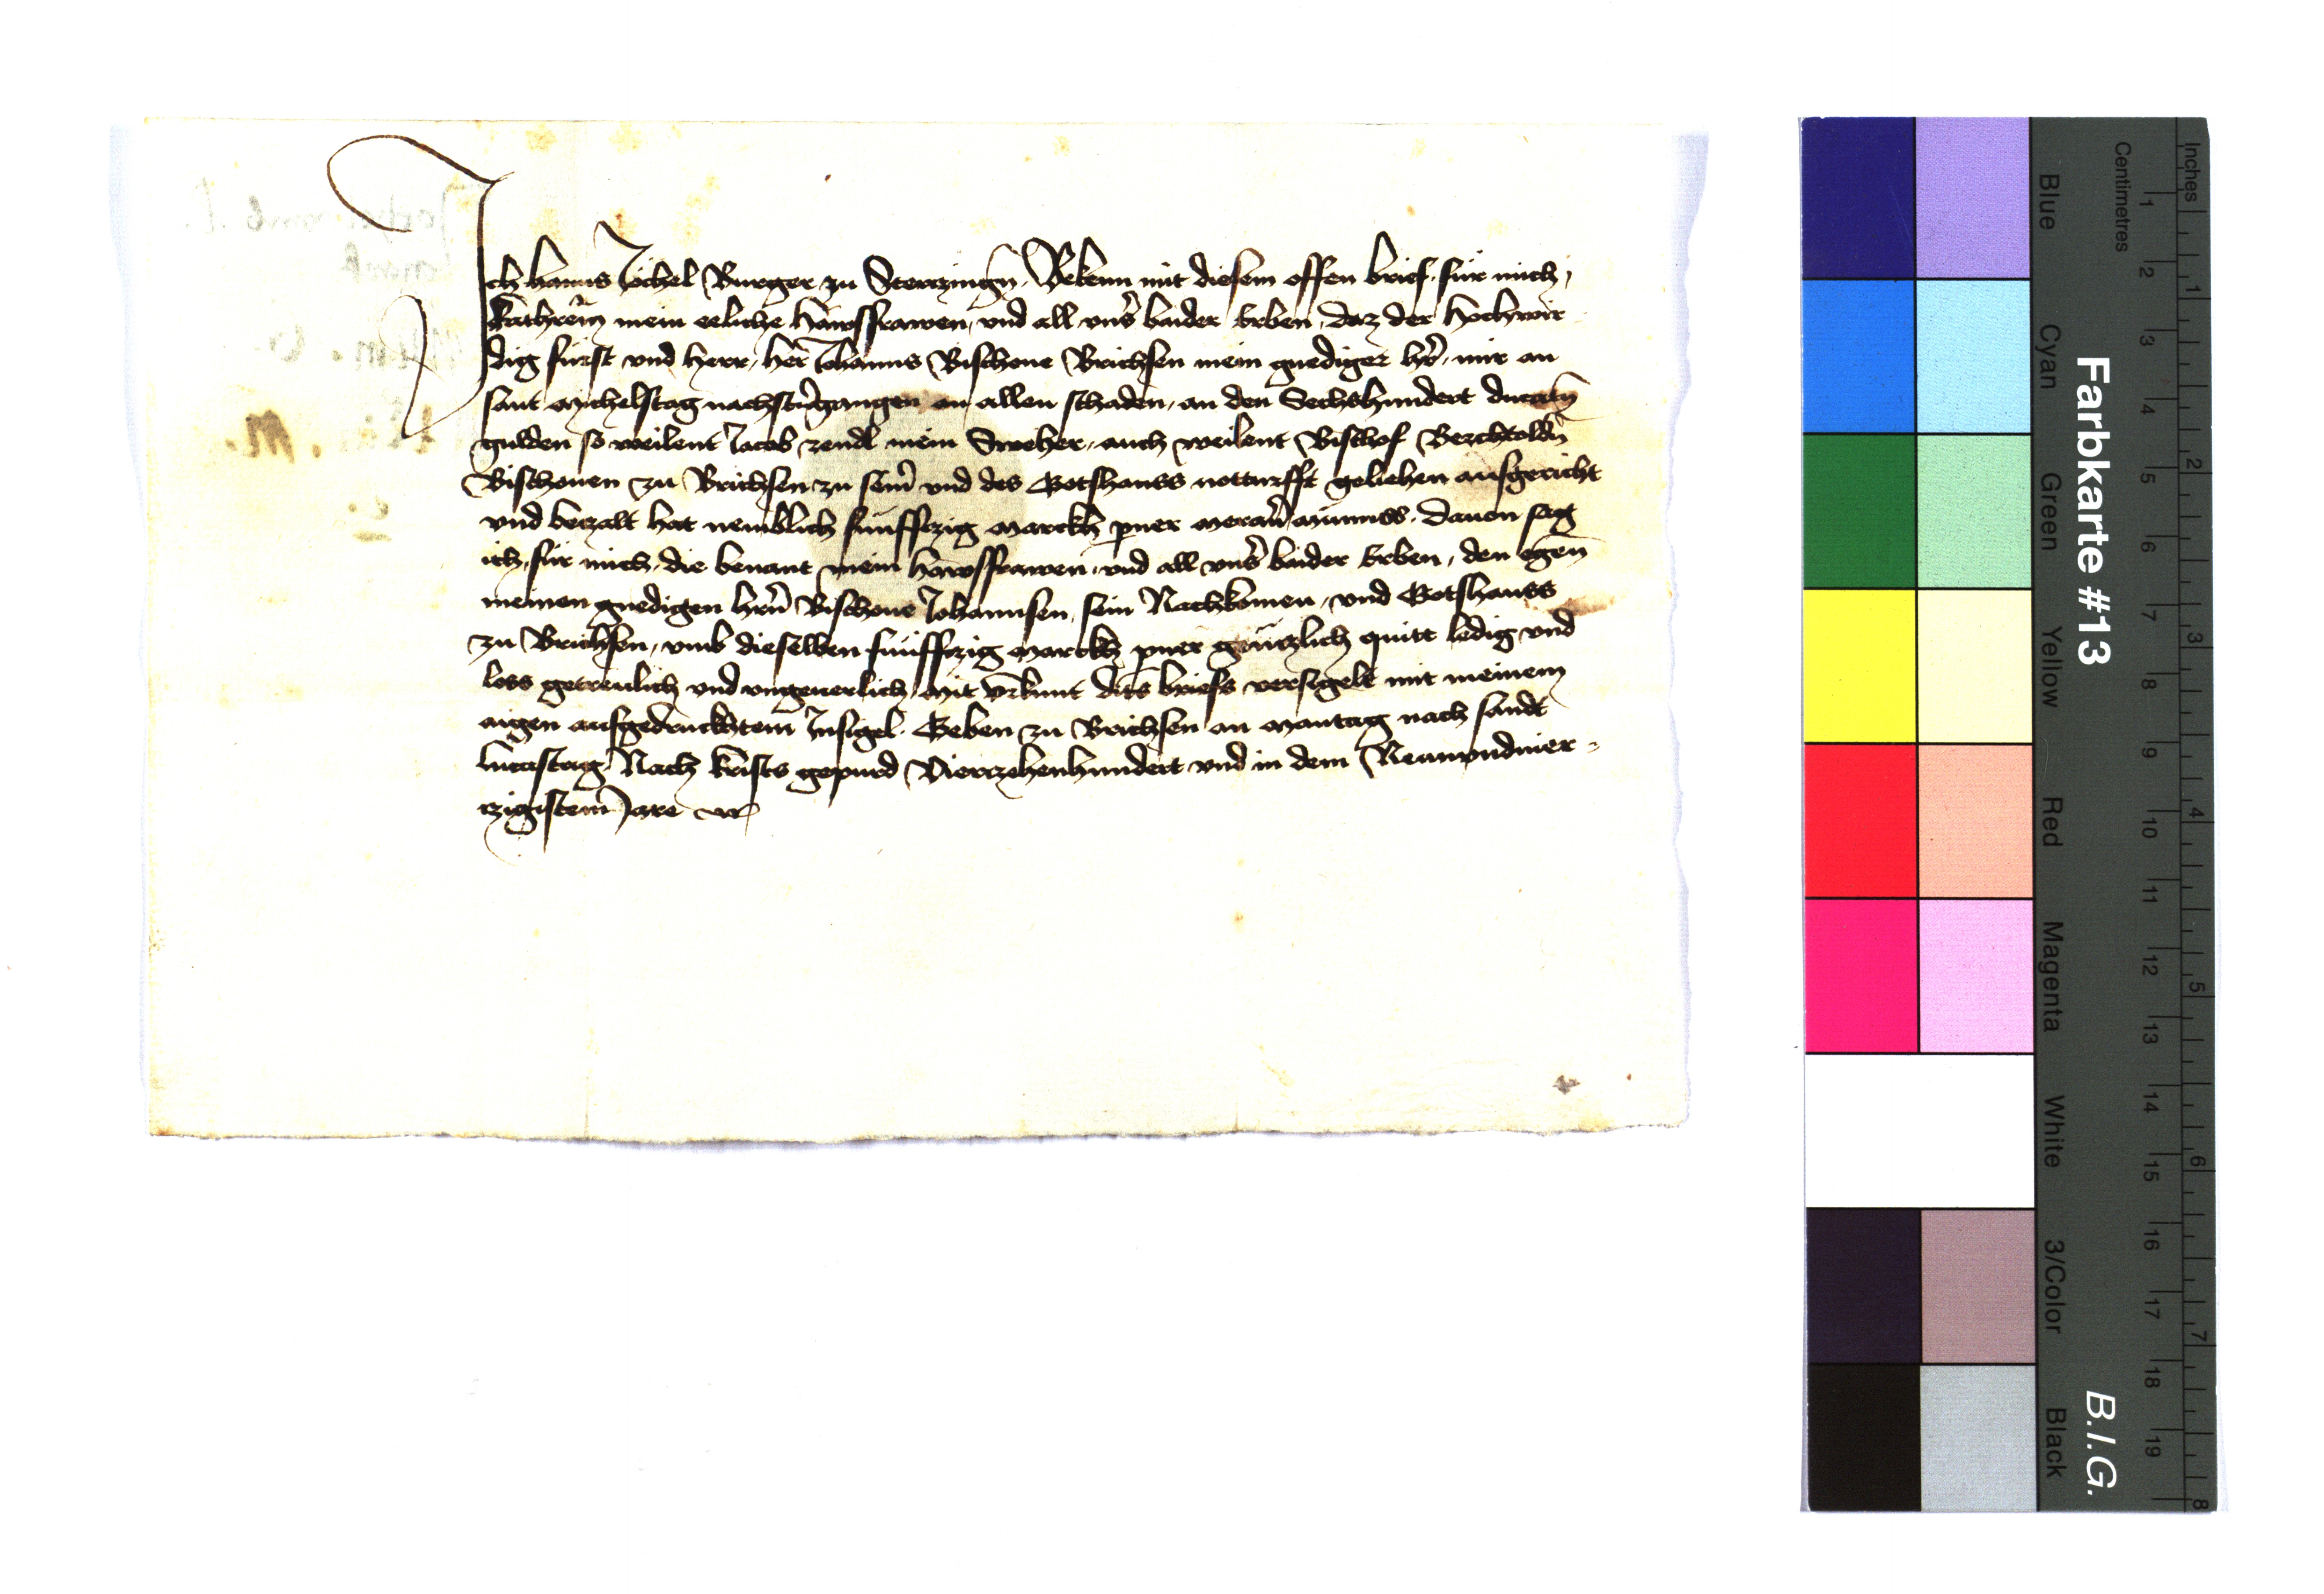 Ich hanns Jöchel Burger zu Stertzingn̄. Bekenn mit diesem offen brief. für mich,
Kathrein̄ mein eeliche hawsfrawen, vnd all vnsẜ baider Erben, daz der hochwir
dig fürst vnd herr, her̄ Johanns Bischoue Brichsen mein gnediger hr̄, mir an
sant Michelstag nachstu̔gangen on allen schaden, an den Sechshundert ducatn̄
gulden so weilent Jacob zendl mein Sweher, auch weilent Bischof Berchtoldn̄
Bischouen zu Brichsen zu seim̄ vnd des Gotshauss notturfft gelichen ausgericht
vnd betzalt hat nemblich fünfftzig Marckh pner Meran̄ Münnss. Dauon sag
ich, für mich, die benant mein hawsfrawen, vnd all vnsẜ baider Erben, den egen̄
meinen gnedigen hrn̄ Bischoue Johannsen, sein Nachkomen, vnd Gotshauss
zu Brichsen, vmb dieselben fünfftzig Marckh pner gentzlich quitt ledig vnd
loss getreulich vnd vngeuerlich, Mit vrkunt dits briefs versigelt mit meinem
aigen aufgedrucktem Insigel. Geben zu Brichsen an Mantag nach sandt
lucastag Nach Krists gepurd Viertzehenhundert vnd in dem Neunvndvier-
tzigistem Jare
Farbkarte #13
B.I.G.
Inches
Centimetres
1 2 3 4 5 6 7 8 9 10 11 12 13 14 15 16 17 18 19
1 2 3 4 5 6 7 8
Blue
Cyan
Green
Yellow
Red
Magenta
White
3/Color
Black